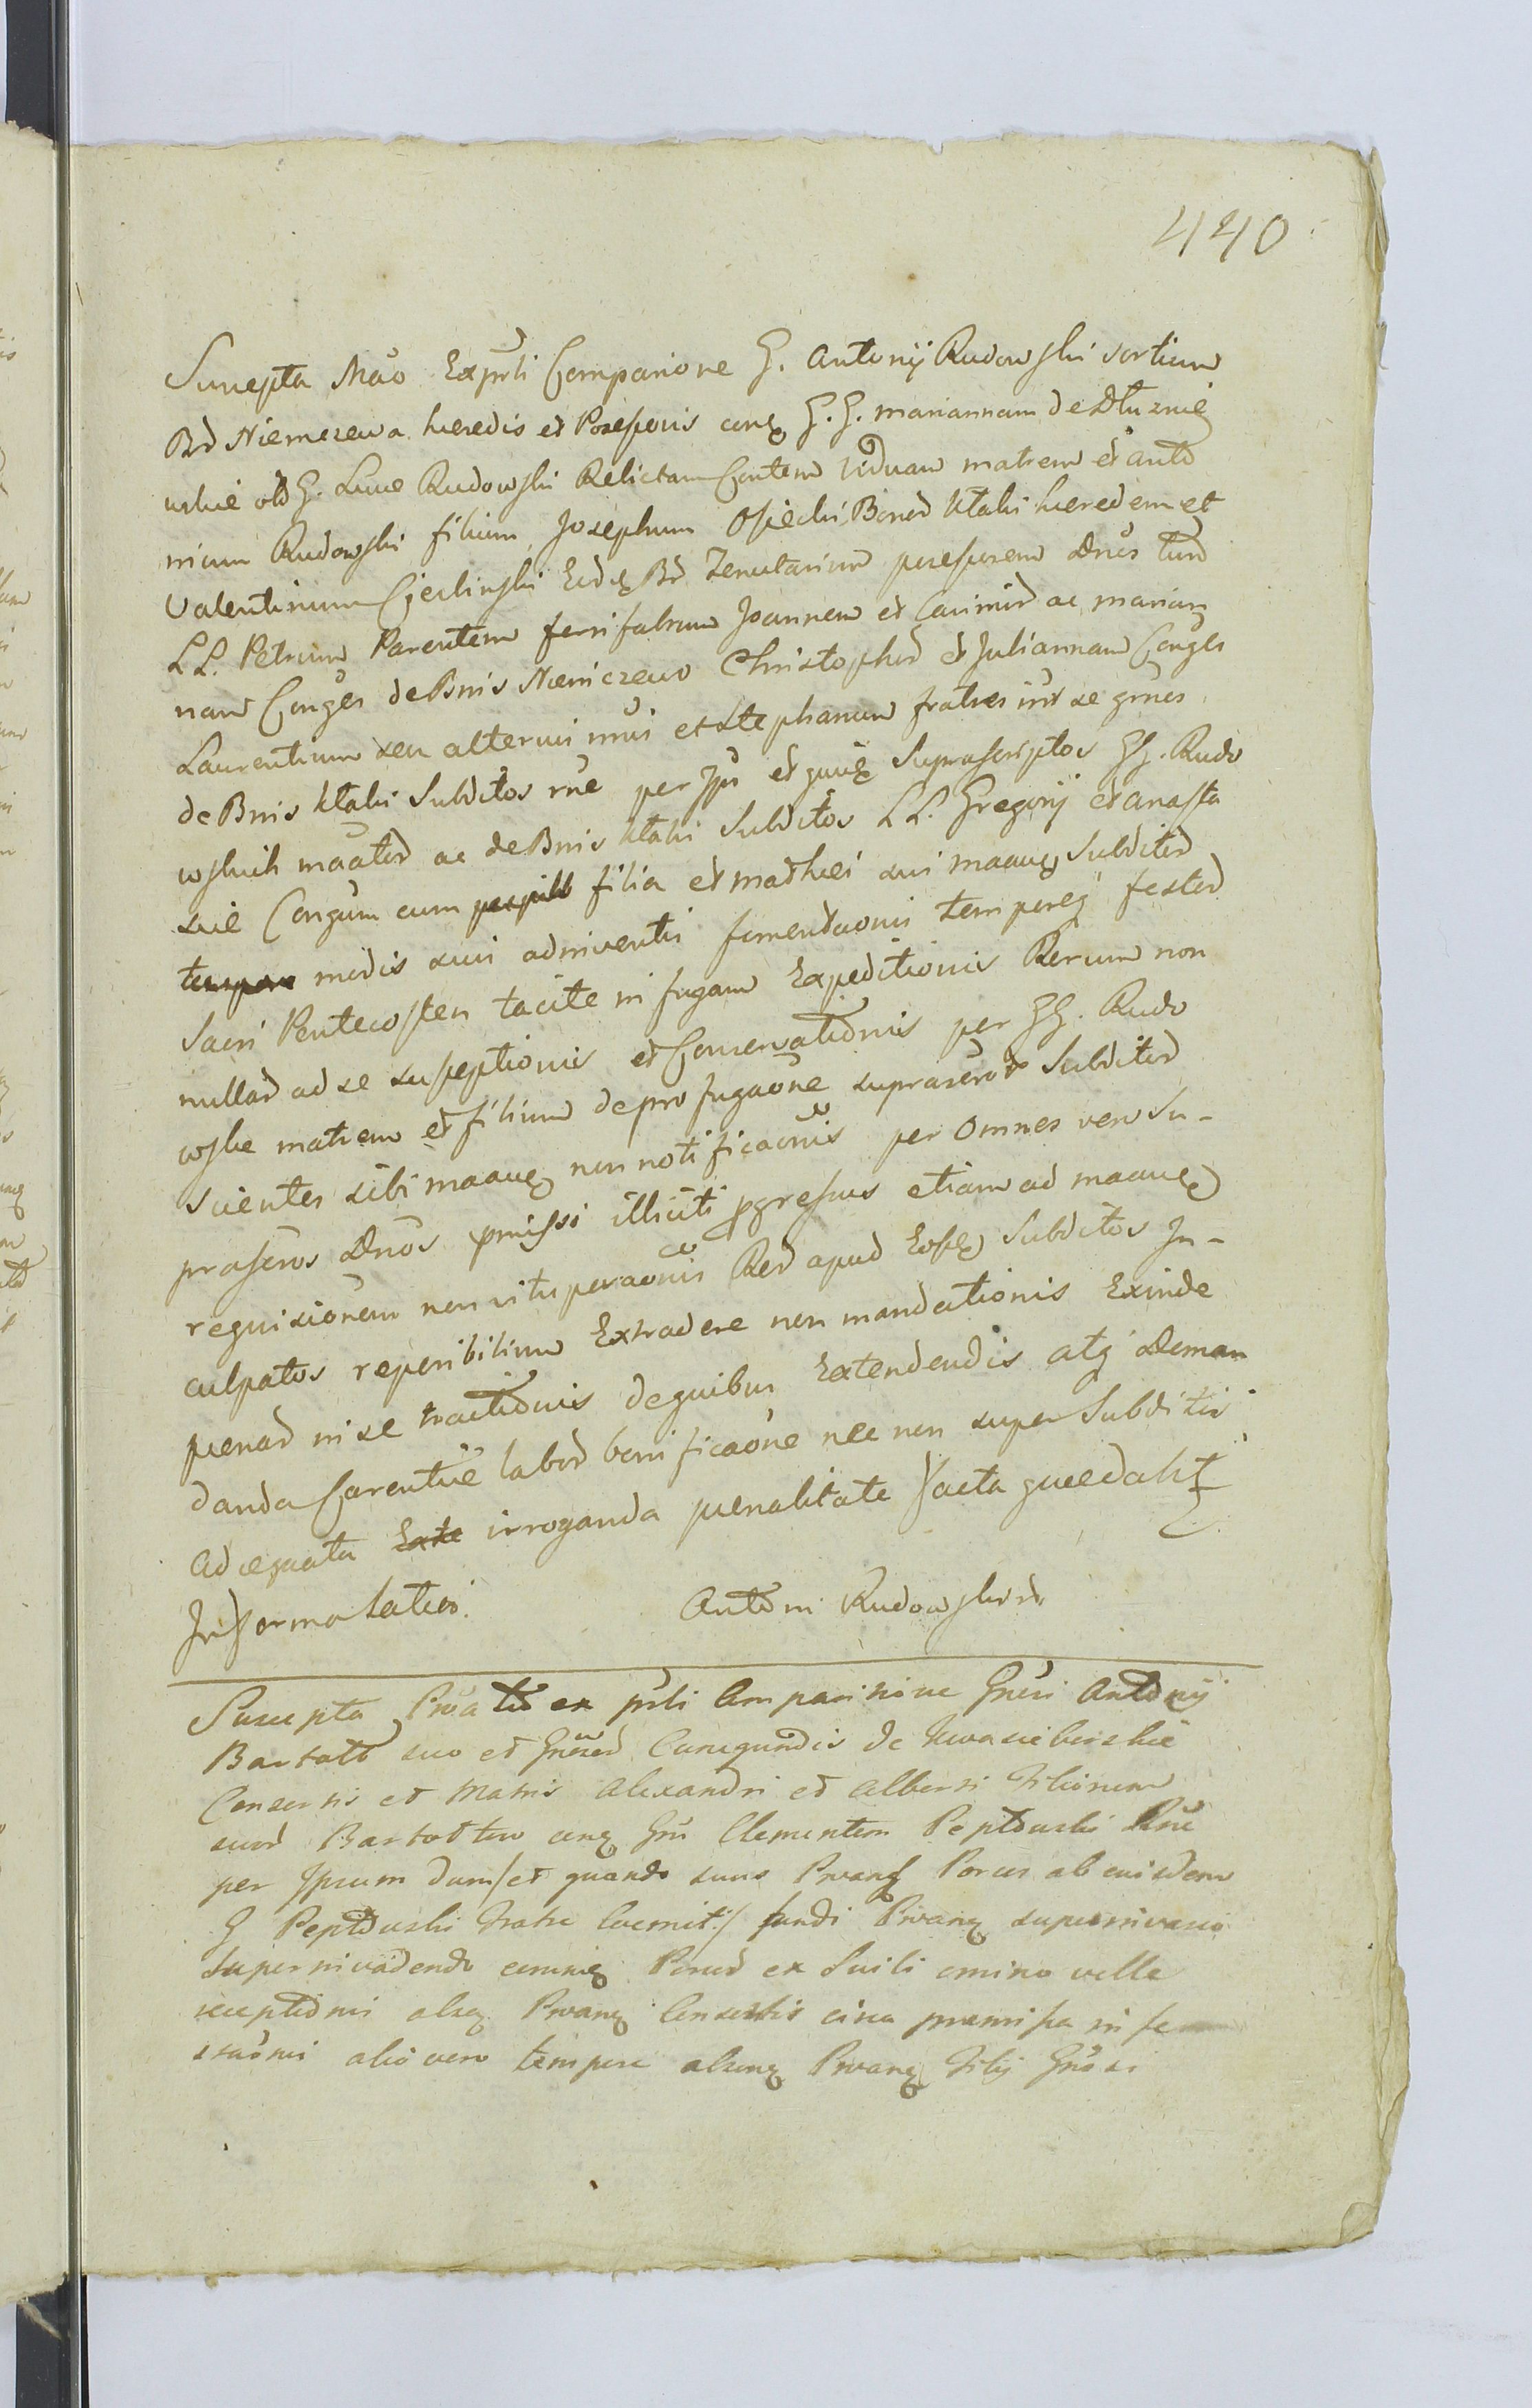 440
Suscepta Mão Exprli Comparione G. Antonij Rudowski sortium
Bd Niemczewa heredis et Possessoris conq G.G. mariannam de Dłuznie
wskie olo G. Luce Rudowski Relictam Contem Viduam matrem et anto
nium Rudowski filium, Josephum Osiecki Bonod Ktaki heredem et
Valentinum Cieclinski Eodq Bd Tenutarium possesorem Dnos tum
LL. Petrum Parentem ferrifabrum Joannem et Casimird ac marian
nam Conges de Bnis Niemczewo Christophod et Juliannam Conges
Laurentium seu alterius nois et Stephanum fratres int se gmos
de Bnis Ktaki Subditos rne per Ipu et quoq Suprascriptos GG. Rudo
wskich maatod ac de Bnis Ktaki Subditos LL. Gregorij et anasta
sie Congum cum filia et mathei sui maanq Subditod
modis suis adinventis fomentaonis temporeq festod
Sacri Pentecosten tacite in fugam Expeditionis Rerum non
nullad ad se susceptionis et Conservationis per GG. Rudo
wske matrem et filium de profugaone suprascrod Subditod
scientes sibi maanq non notificaonis per Omnes vero Su-
prascros Dnos pmissi illiciti pgressus etiam ad maanq
requisionem non vituperaonis Red apud Eosq Subditos In-
culpatos reperibilium Extradere non mandationis Exinde
penad in se tractionis de quibus Extendendis atq Deman
danda Carentie labod bonificaone nec non super Subditis
Adequata irroganda penalitate facta queedaht
In forma latiori. Antoni Rudowski
Suscepta Proato ex prli Comparisione Gnosi Antonij
Bartołt suo et Gnosed Cunegundis de Kwasieborskie
Consortis et Matris Alexandri et Alberti Filiorum
suod Bartołtow conq Gnm Clementem Peptowski Rne
per Ipsum dum et quando suus Proanq Porcus ab eiusdem
G Peptowski fratre Coemit / fundi Proanq supernivasio
supernivadendo eumq Porcud ex Suili omino velle
receptionis absq Proanq Consortis circa premissa in fe
staonis alio vero tempore absenq Proanq Filij Gnosi